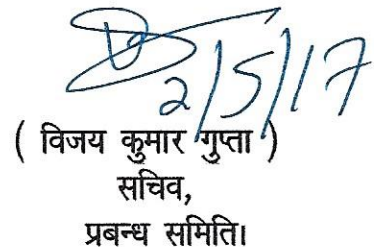 2/5/17
( विजय कुमार गुप्ता )
सचिव,
प्रबन्ध समिति।